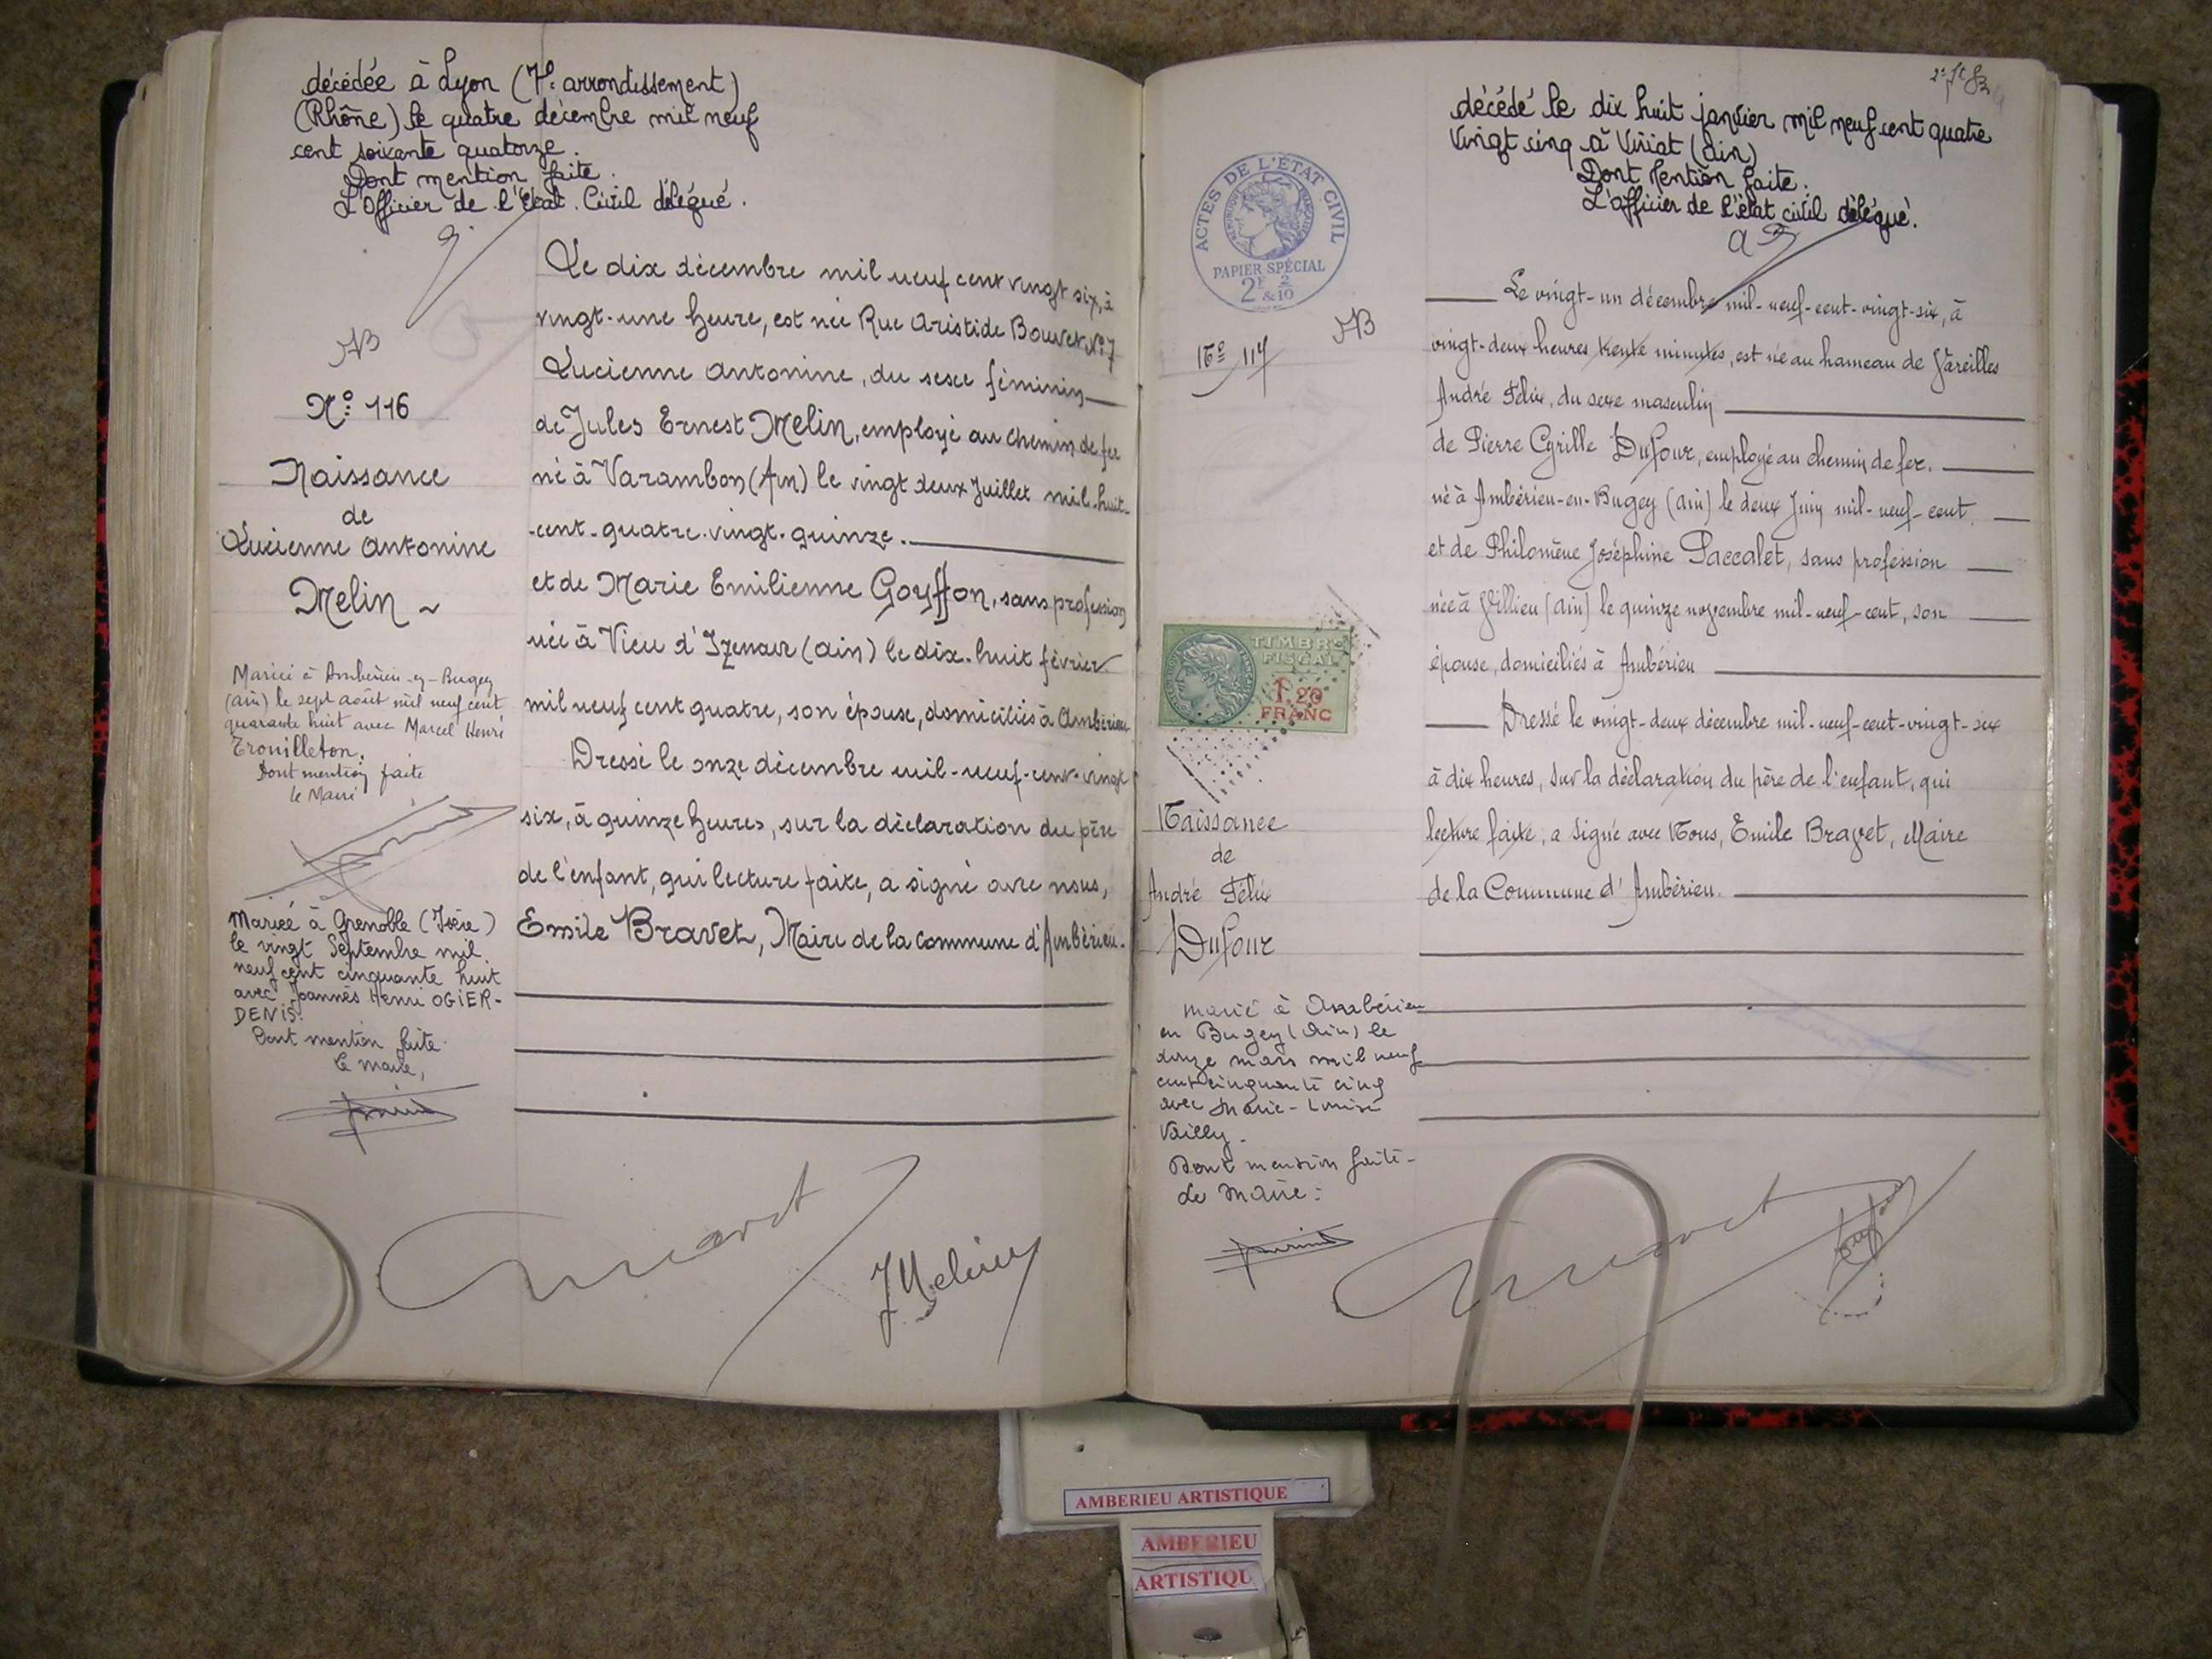 décédée à Lyon (7e arrondissement)
(Rhône) le quatre décembre mil neuf
cent soixante quatorze.
Dont mention faite.
L'Officier de l'Etat Civil délégué.
Le dix décembre mil neuf cent vingt six, à
vingt-une heure, est née Rue Aristide Bouvet No 7
Lucienne Antonine, du sexe féminin
de Jules Ernest Melin, employé au chemin de fer
né à Varambon (Ain) le vingt deux Juillet mil-huit-
-cent-quatre-vingt-quinze.
et de Marie Emilienne Goyffon, sans profession
née à Vieu d'Izenave (Ain) le dix-huit février
mil neuf cent quatre, son épouse, domiciliés à Ambérieu
Dressé le onze décembre mil-neuf-cent-vingt
six, à quinze heures, sur la déclaration du père
de l'enfant, qui lecture faite, a signé avec nous,
Emile Bravet, Maire de la commune d'Ambérieu.
No 116
Naissance
de
Lucienne Antonine
Melin
Mariée à Ambérieu-en-Bugey
(Ain) le sept août mil neuf cent
quarante huit avec Marcel Henri
Trouilleton.
Dont mention faite
le Maire
Mariée à Grenoble (Isère)
le vingt Septembre mil
neuf cent cinquante huit
avec Joannès Henri OGIER-
DENIS.
Dont mention faite.
Le maire,
Bravet
J Melin
décédé le dix huit janvier mil neuf cent quatre
vingt cinq à Viriat (Ain)
Dont Mention faite.
L'officier de l'état civil délégué.
ACTES DE L'ÉTAT CIVIL
RÉPUBLIQUE FRANÇAISE
PAPIER SPÉCIAL
2F & 2/10
No 117
Le vingt-un décembre mil-neuf-cent-vingt-six, à
vingt-deux heures trente minutes, est né au hameau de Vareilles
André Félix, du sexe masculin
de Pierre Cyrille Dufour, employé au chemin de fer.
né à Ambérieu-en-Bugey (Ain) le deux Juin mil-neuf-cent
et de Philomène Joséphine Paccalet, sans profession
née à Villieu (Ain) le quinze novembre mil-neuf-cent, son
épouse, domiciliés à Ambérieu
Dressé le vingt-deux décembre mil-neuf-cent-vingt-six
à dix heures, sur la déclaration du père de l'enfant, qui
lecture faite, a signé avec Nous, Emile Bravet, Maire
de la Commune d'Ambérieu.
TIMBRE
FISCAL
1.20
FRANC
Naissance
de
André Félix
Dufour
marié à Ambérieu
en Bugey (Ain) le
douze mars mil neuf
cent cinquante cinq
avec Marie-Louise
Vailly.
Dont mention faite-
Le Maire:
Bravet
Dufour
AMBERIEU ARTISTIQUE
AMBERIEU
ARTISTIQU